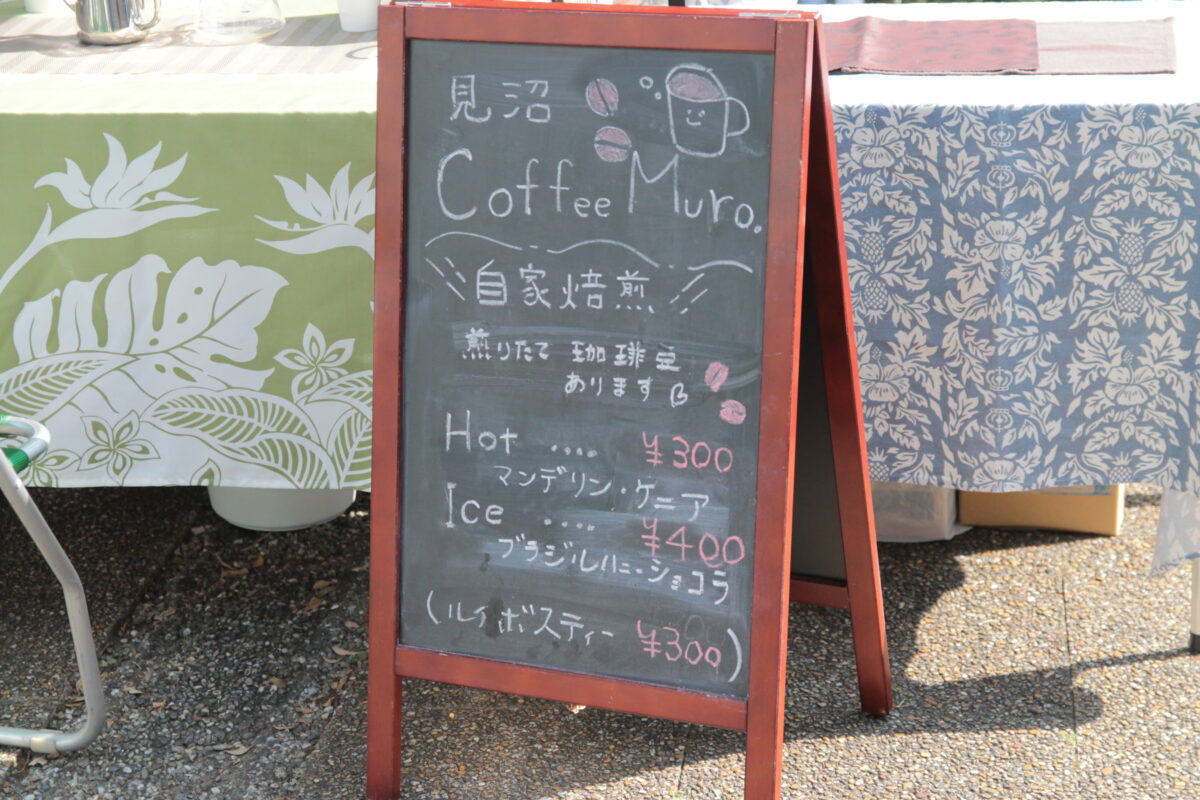 見沼
Coffee Muro.
自家焙煎
煎りたて 珈琲豆
あります
Hot .... ¥300
マンデリン・ケニア
Ice .... ¥400
ブラジルハニーショコラ
(ルイボスティー ¥300)